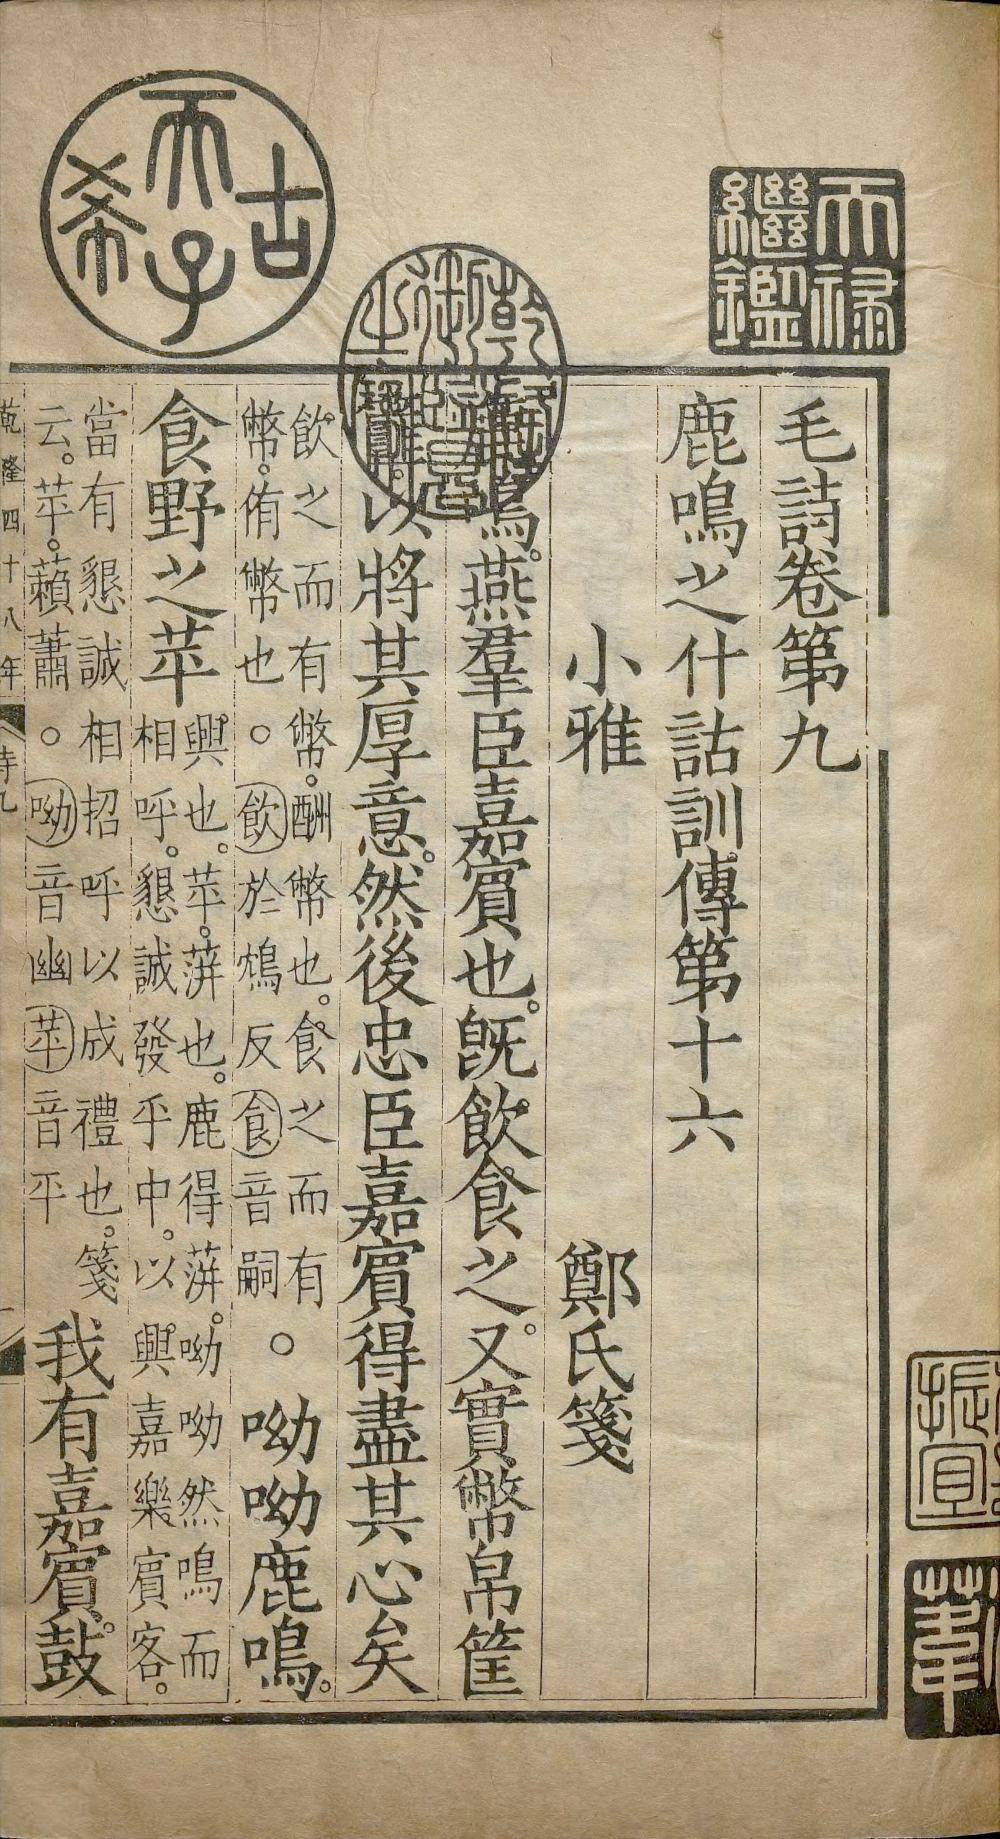 毛詩卷第九
鹿鳴之什詁訓傳第十六
小雅 鄭氏箋
鹿鳴。燕羣臣嘉賓也。旣飲食之。又實幣帛筐
篚。以將其厚意。然後忠臣嘉賓得盡其心矣
飲之而有幣。酬幣也。食之而有
幣。侑幣也。飲於鴆反食音嗣。
呦呦鹿鳴。
食野之苹
興也。苹。蓱也。鹿得蓱。呦呦然鳴而
相呼。懇誠發乎中。以興嘉樂賓客。
當有懇誠相招呼以成禮也。箋
云。苹。藾蕭。呦音幽苹音平
我有嘉賓。鼓
乾隆四十八年
天祿繼鑑
乾隆御覽之寶
古希天子